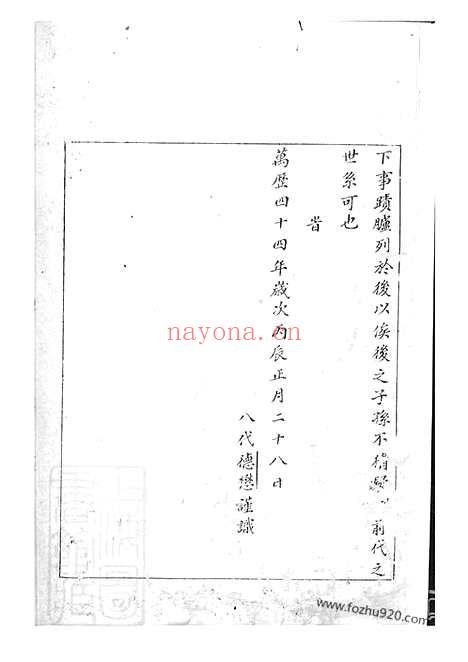 下事蹟臚列於後以俟後之子孫不 前代之
世系可也
旹
萬歷四十四年歲次丙辰正月二十八日
八代德懋謹識
nayona.cn
www.fozhu920.com